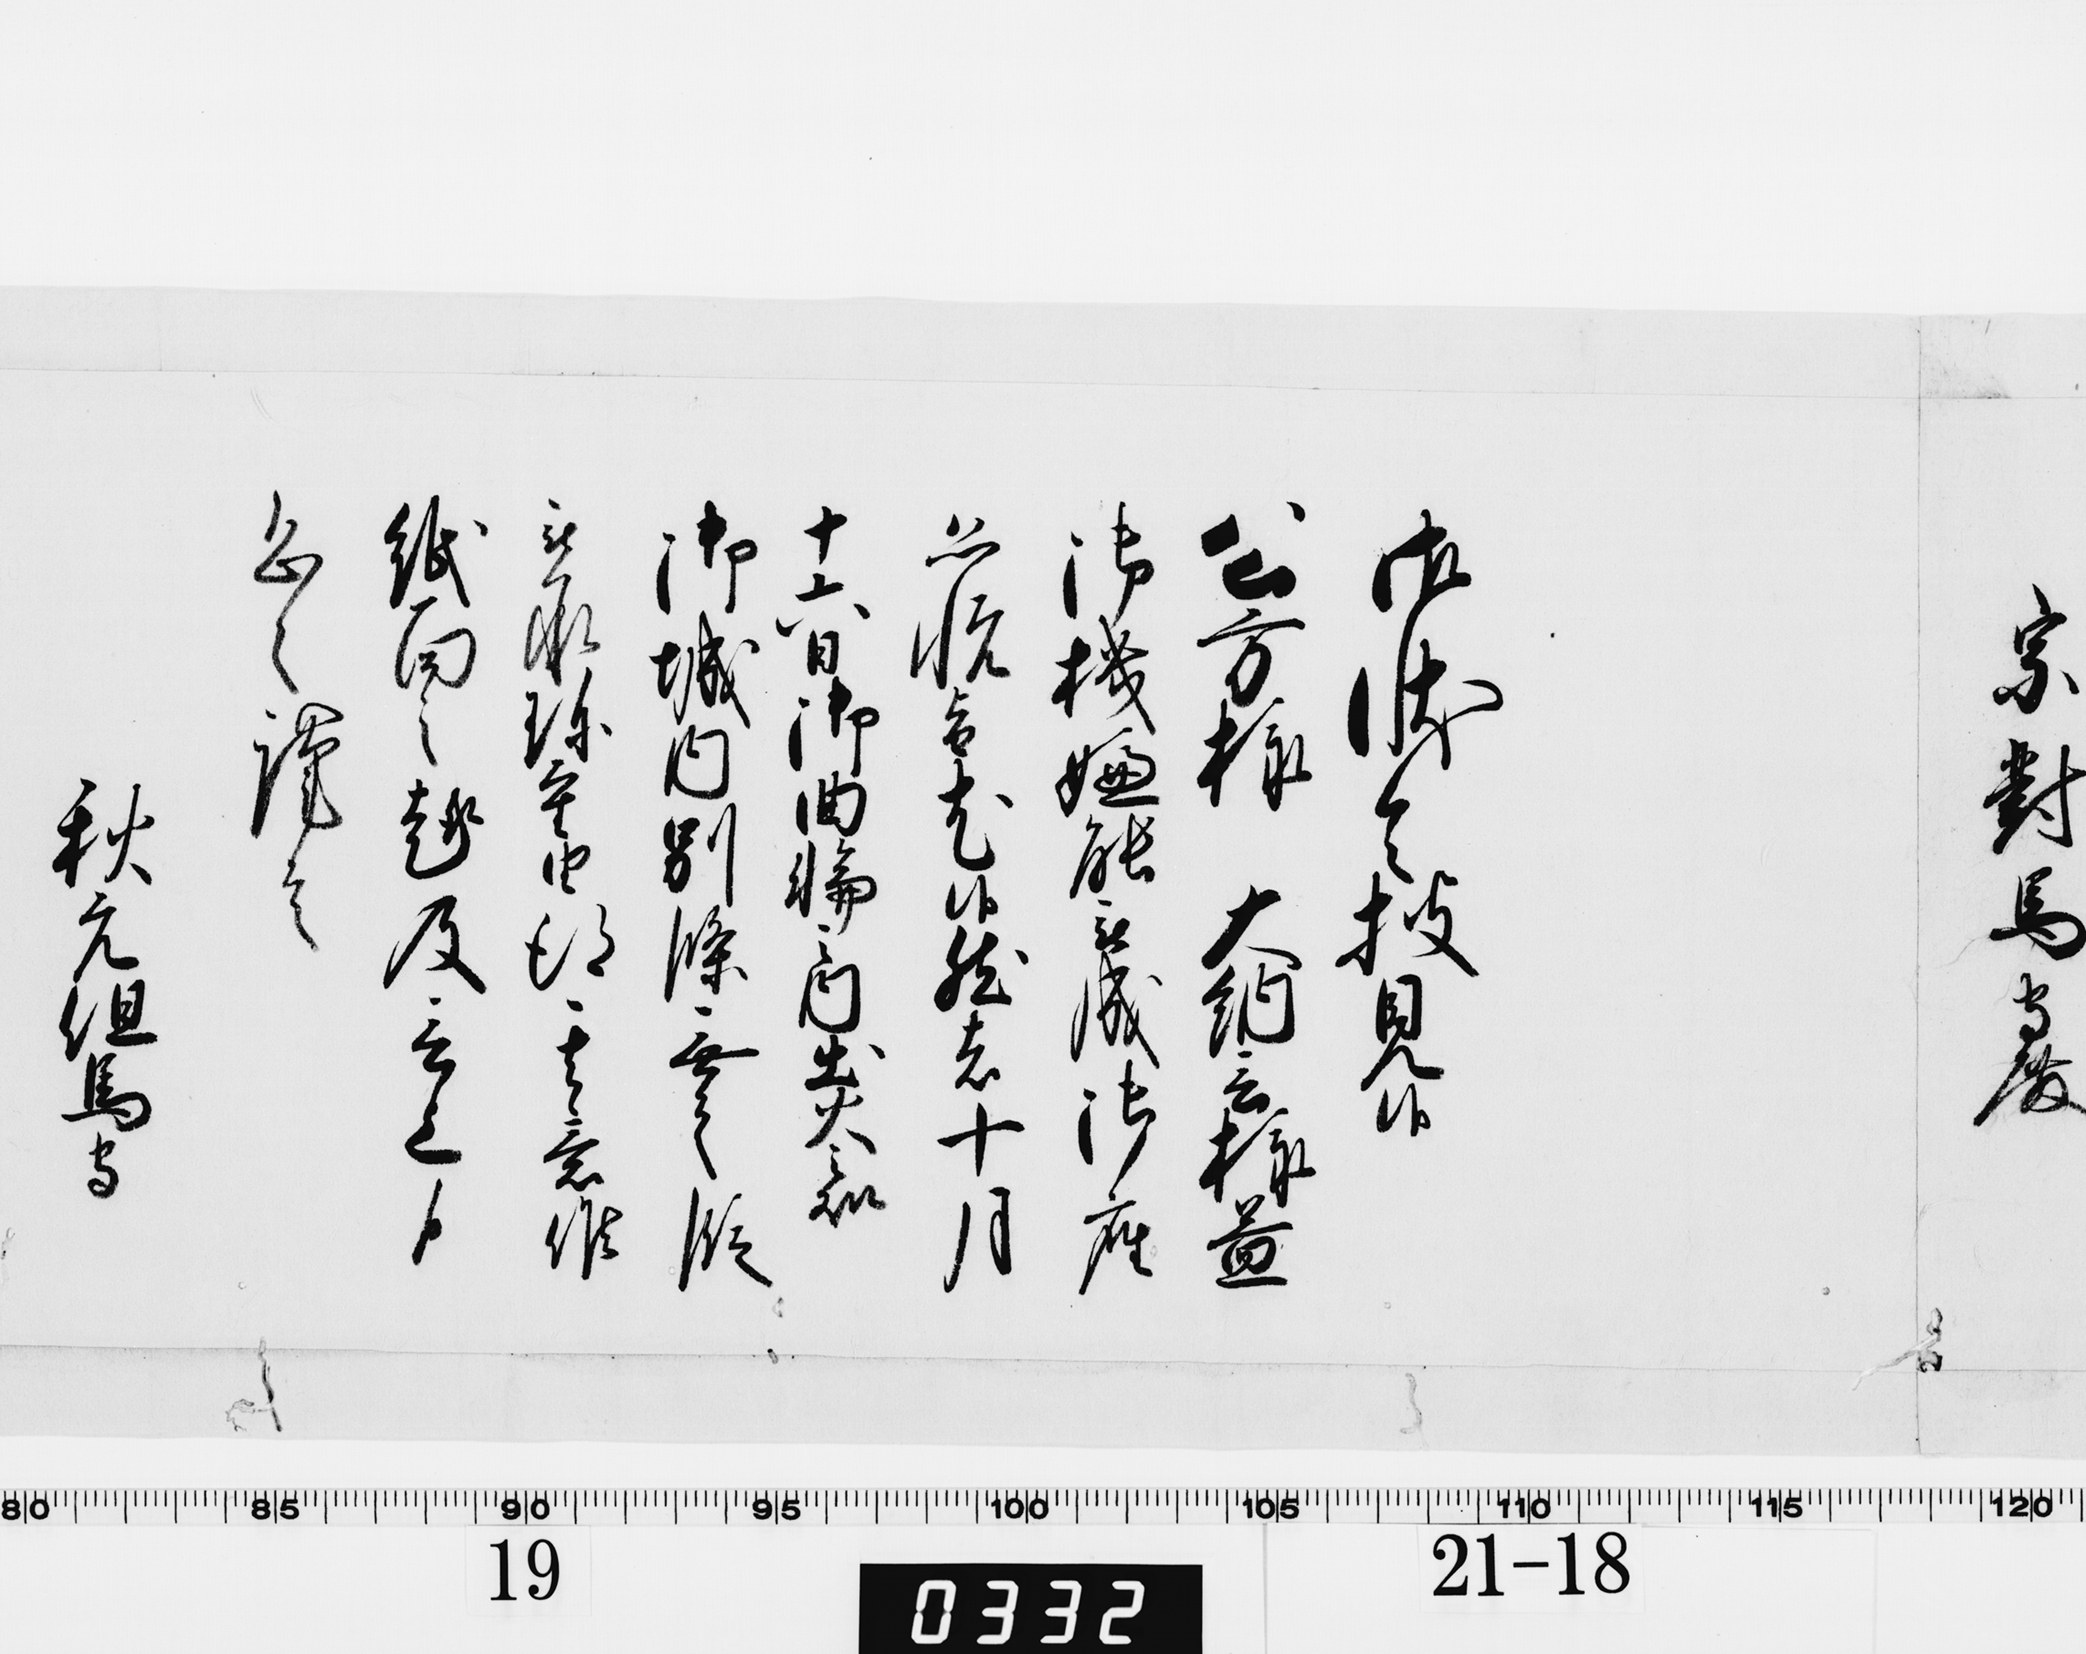 宗對馬守殿
御状令披見候
公方様 大納言様益
御機嫌能被成御座
恐悦旨尤候然者十月
十六日御曲輪之内出火候処
御城内別條無之段
被承珍重由得其意候
紙面之趣及言上候
恐々謹言
秋元但馬守
80 85 90 95 100 105 110 115 120
19
0332
21-18